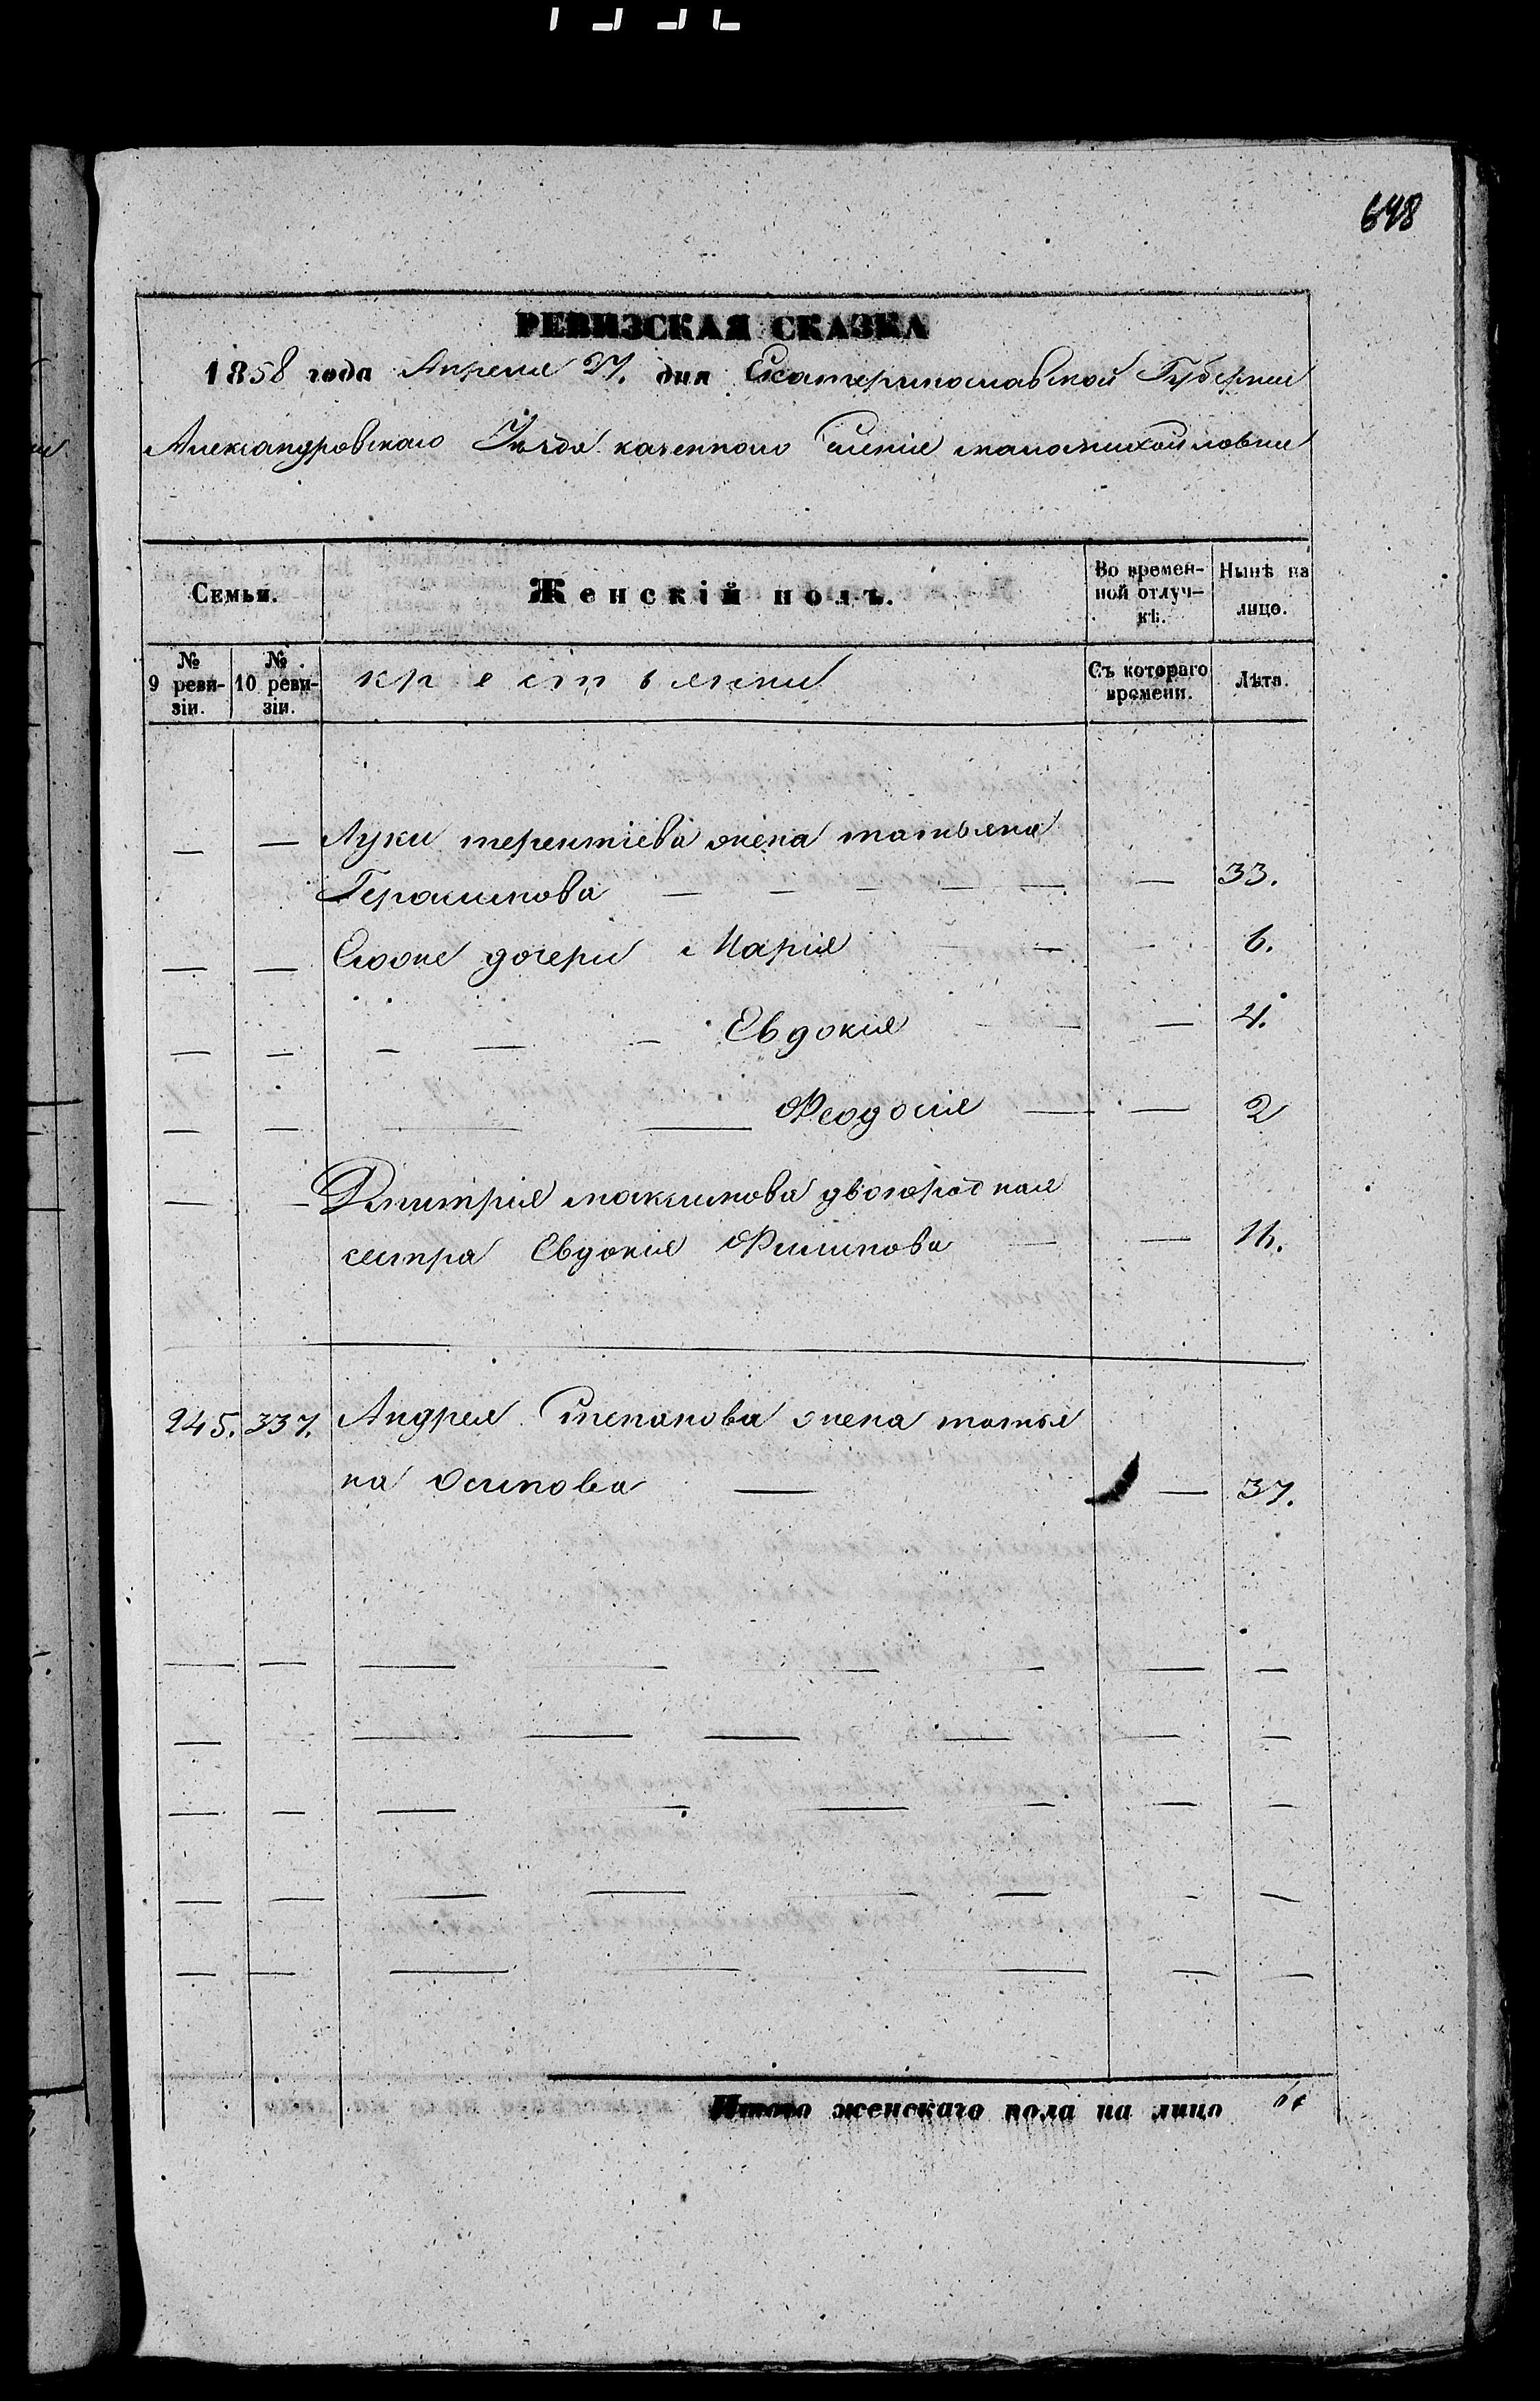 648
РЕВИЗСКАЯ СКАЗКА
1858 года Апреля 27. дня Екатеринославской Губернии
Александровскаго Уѣзда казенного селенія маломихайловки
Семьи.
Женскій полъ.
Во времен-
ной отлуч-
кѣ.
Нынѣ на
лицо.
№
9 реви-
зіи.
№
10 реви-
зіи.
крестьянки
Съ котораго
времени.
Лѣта.
— — Луки терентіева жена татьяна
Герасимова — — — — — — 33.
— — Евоже дочери Марія — — 6.
— — — — — Евдокия — — 4.
— — — — Феодосия — — 2
— — Дмитрия максимова двоюродная
сестра Евдокия Филипова — — 16.
245. 337. Андрея Степанова жена татья
на Осипова — — 37.
Итого женскаго пола на лицо